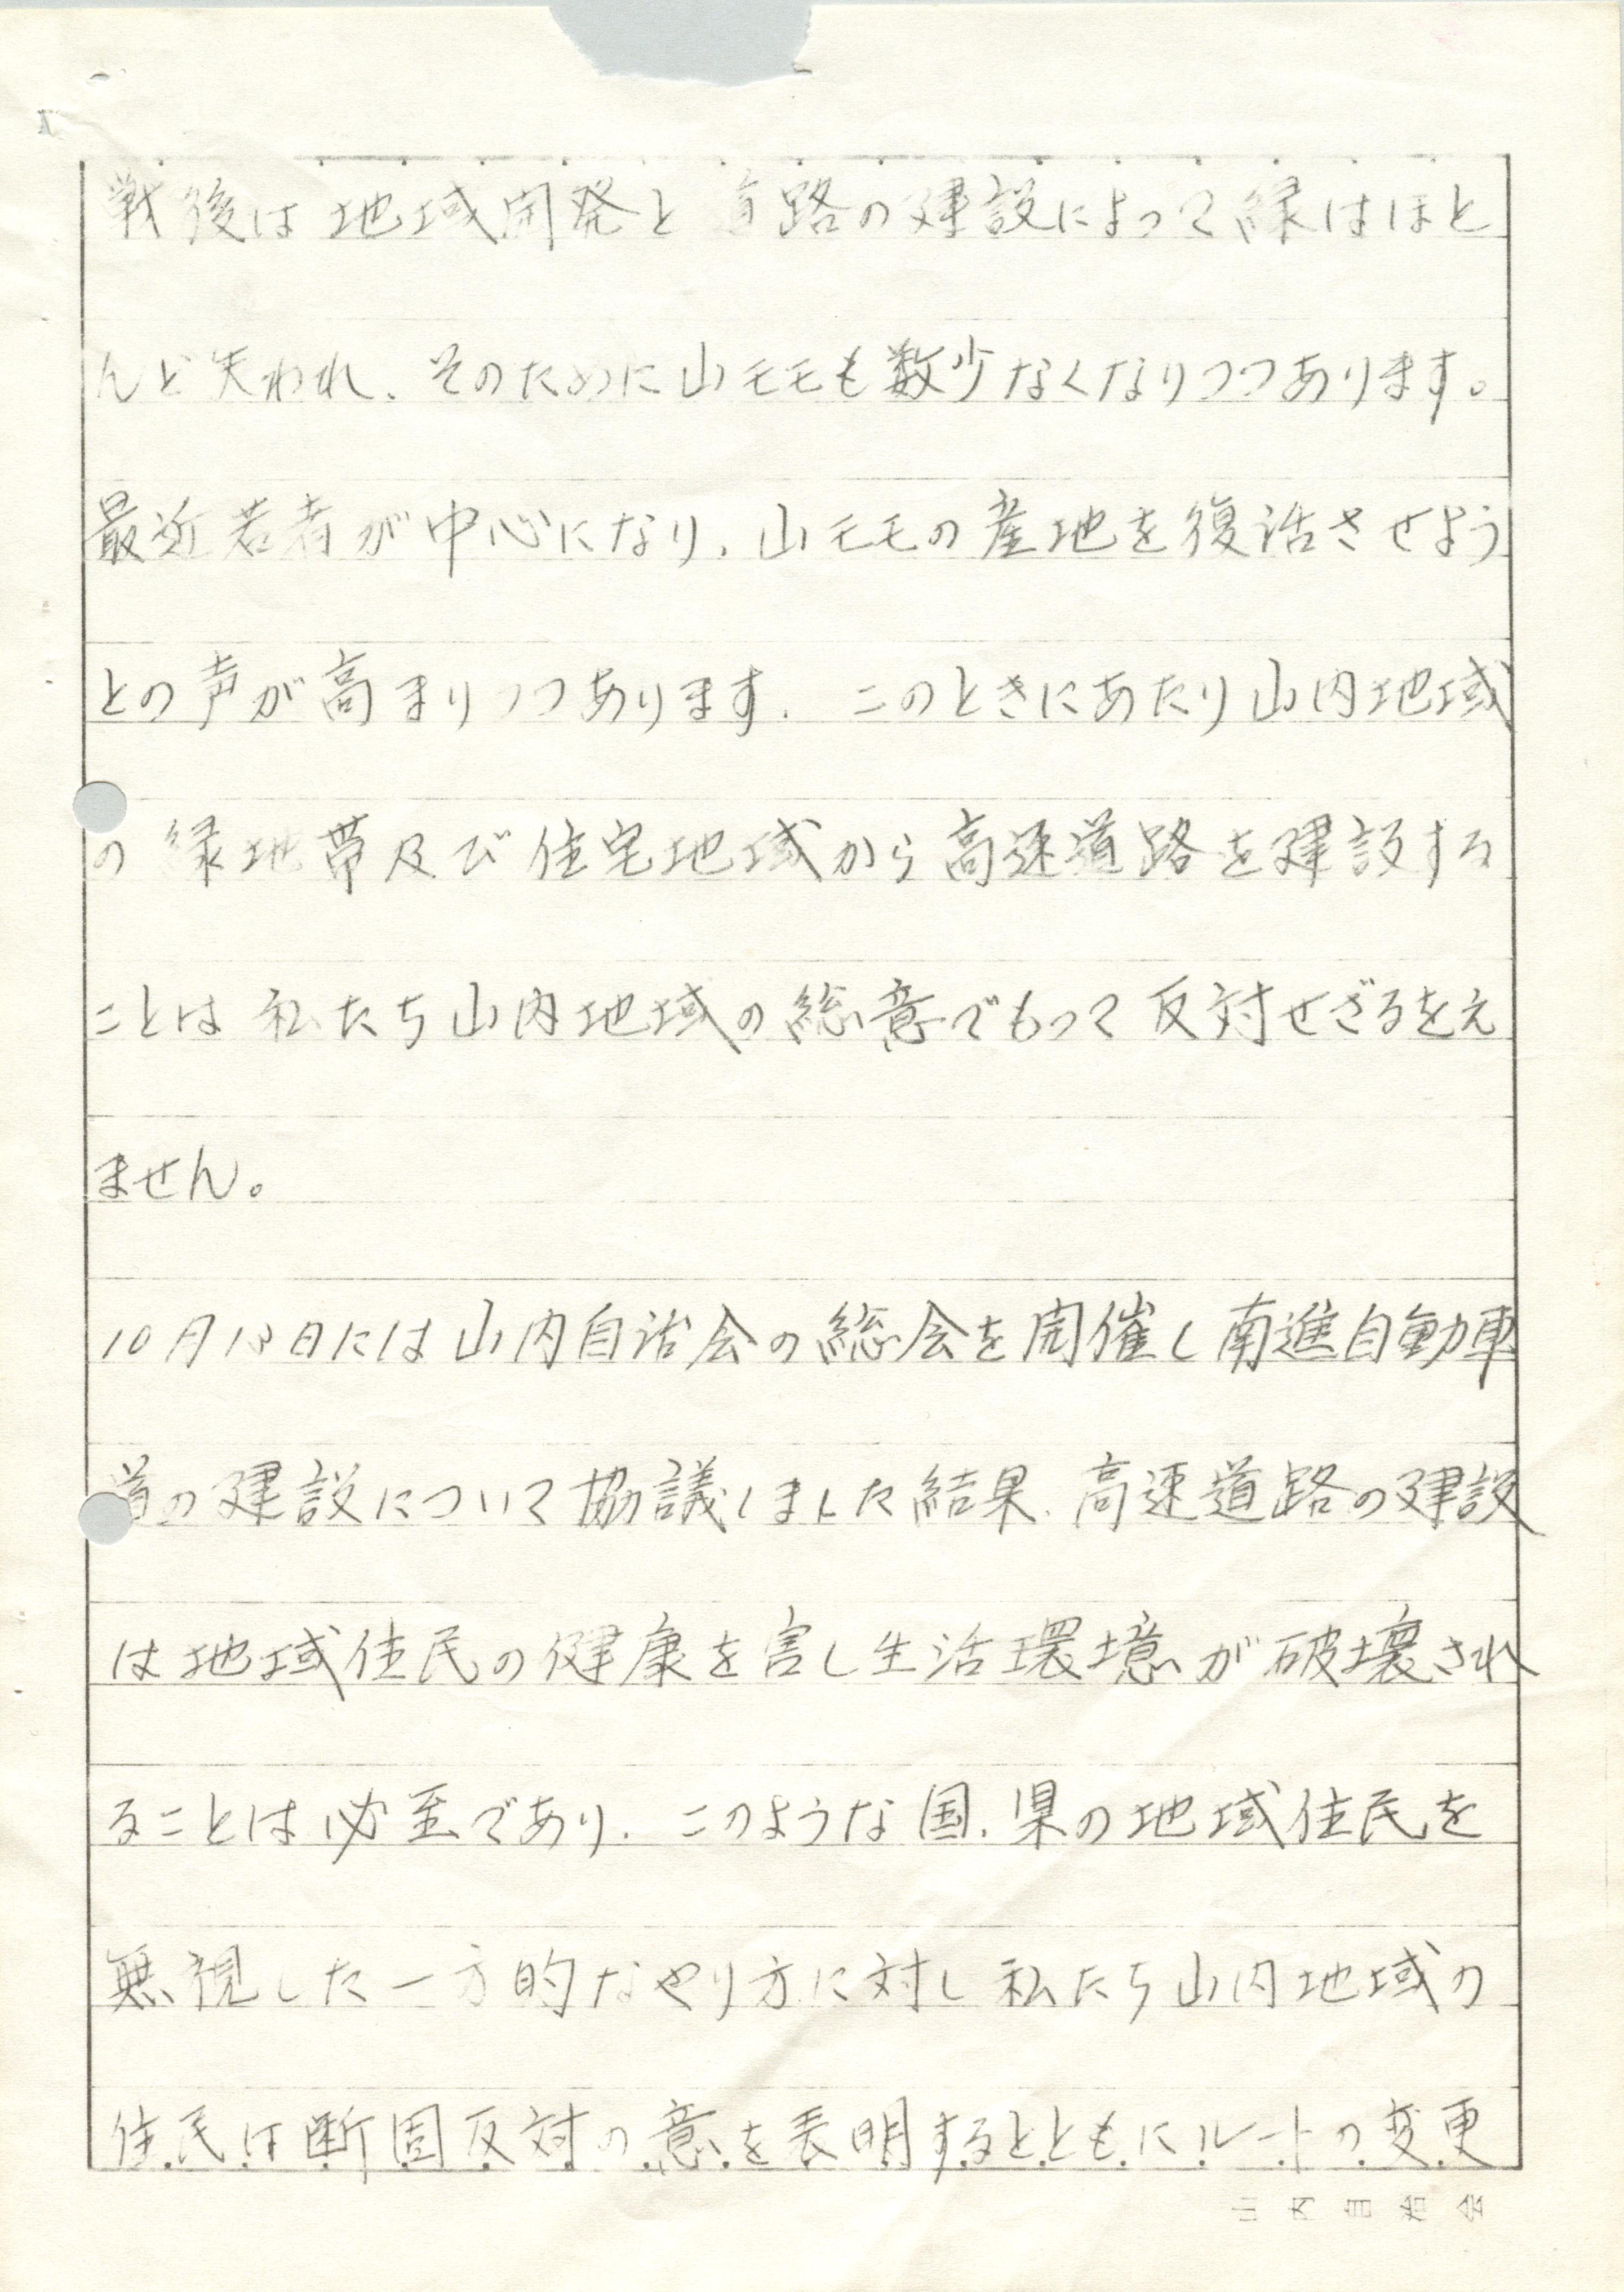 戦後は地域開発と道路の建設によって緑はほと
んど失われ、そのために山モモも数少なくなりつつあります。
最近若者が中心になり、山モモの産地を復活させよう
との声が高まりつつあります。このときにあたり山内地域
の緑地帯及び住宅地域から高速道路を建設する
ことは私たち山内地域の総意でもって反対せざるをえ
ません。
10月13日には山内自治会の総会を開催し南進自動車
道の建設について協議しました結果、高速道路の建設
は地域住民の健康を害し生活環境が破壊され
ることは必至であり、このような国、県の地域住民を
無視した一方的なやり方に対し私たち山内地域の
住民は断固反対の意を表明するとともにルートの変更
山内自治会